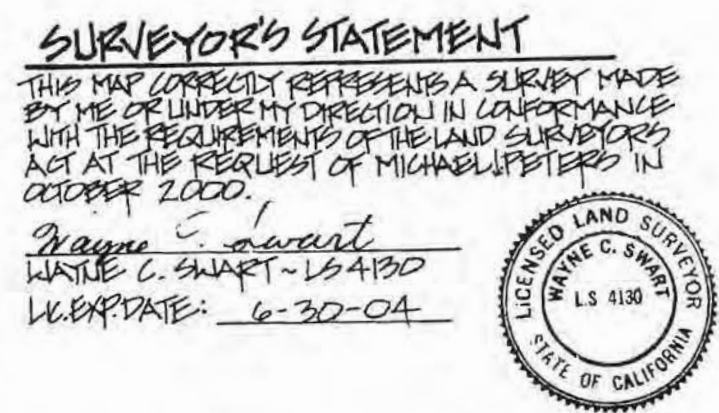 SURVEYOR'S STATEMENT
THIS MAP CORRECTLY REPRESENTS A SURVEY MADE
BY ME OR UNDER MY DIRECTION IN CONFORMANCE
WITH THE REQUIREMENTS OF THE LAND SURVEYORS
ACT AT THE REQUEST OF MICHAEL J. PETERS IN
OCTOBER 2000.
Wayne C. Swart
WAYNE C. SWART ~ LS 4130
LIC. EXP. DATE: 6-30-04
LICENSED LAND SURVEYOR
WAYNE C. SWART
L.S 4130
STATE OF CALIFORNIA